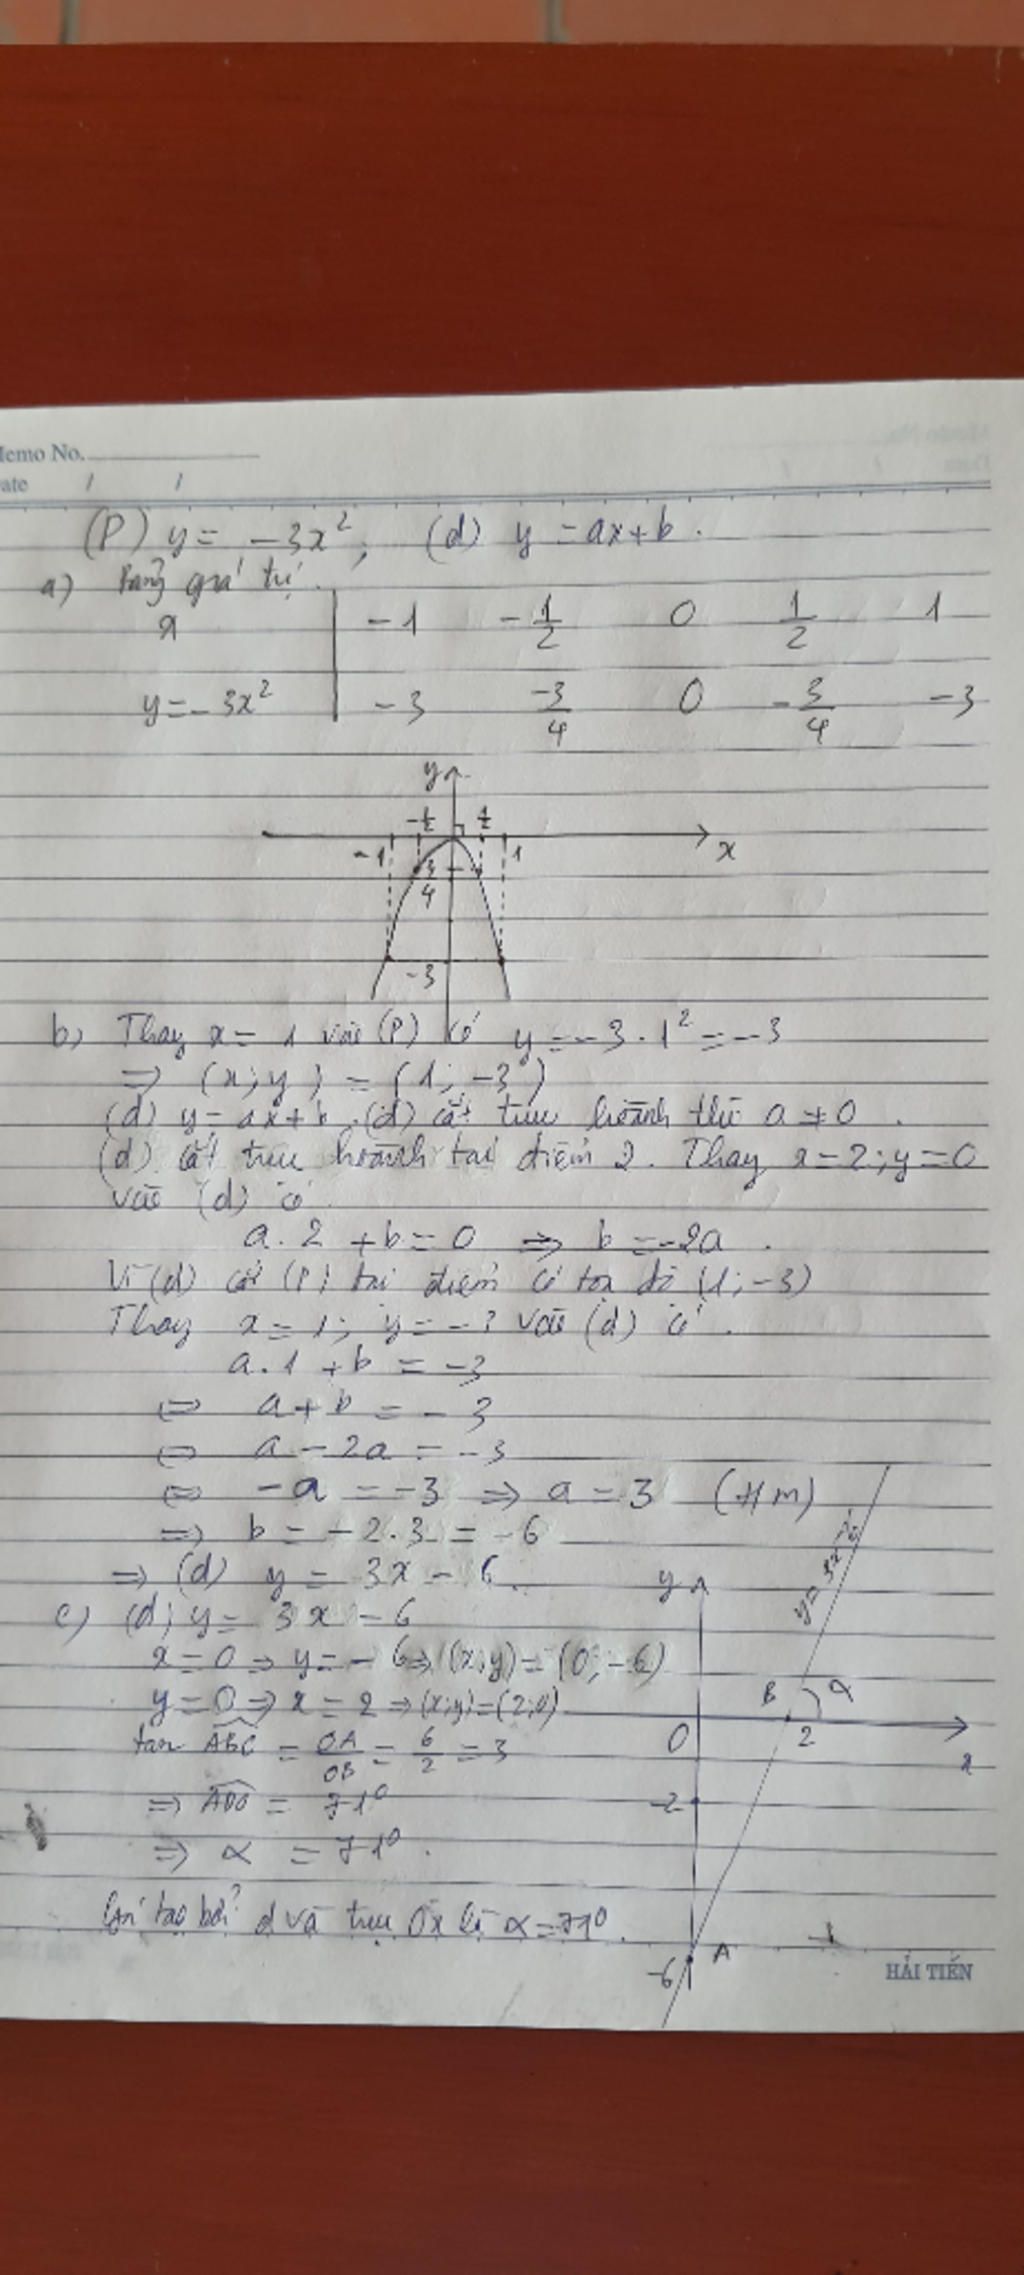 Memo No.
ate / /
(P) y = -3x², (d) y = ax+b.
a) Bảng giá trị.
x -1 -1/2 0 1/2 1
y = -3x² -3 -3/4 0 -3/4 -3
y
-1/2 1/2
-1 1 x
3/4
-3
b) Thay x = 1 vào (P) có y = -3.1² = -3
⇒ (x; y) = (1; -3)
(d) y = ax+b. (d) cắt trục hoành thì a ≠ 0.
(d) cắt trục hoành tại điểm 2. Thay x = 2; y = 0
vào (d) có
a.2 + b = 0 ⇒ b = -2a.
Vì (d) cắt (P) tại điểm có tọa độ (1; -3)
Thay x = 1; y = -3 vào (d) có.
a.1 + b = -3
⇔ a + b = -3
⇔ a - 2a = -3
⇔ -a = -3 ⇒ a = 3 (tm)
⇒ b = -2.3 = -6
⇒ (d) y = 3x - 6.
c) (d) y = 3x - 6
x = 0 ⇒ y = -6 ⇒ (x;y) = (0; -6)
y = 0 ⇒ x = 2 ⇒ (x;y) = (2;0)
tan ABC = OA/OB = 6/2 = 3
⇒ ABO = 71°
⇒ α = 71°.
Góc tạo bởi d và trục Ox là α = 71°.
y
y = 3x - 6
B α
0 2 x
-2
-6 A
HẢI TIẾN